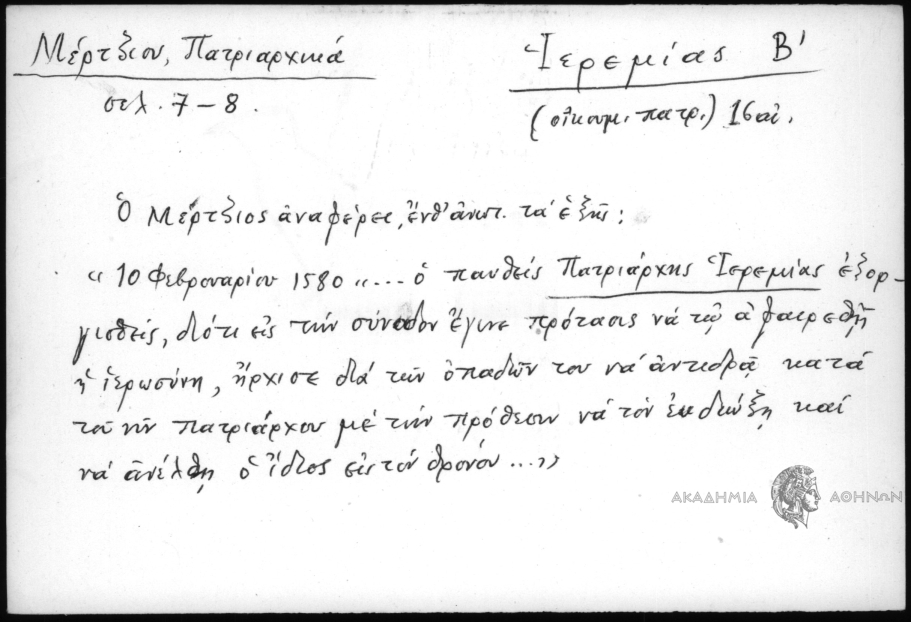 Μέρτζιου, Πατριαρχικά
σελ. 7 – 8.
Ἱερεμίας Β'
(οἰκουμ. πατρ.) 16 αἰ.
Ὁ Μέρτζιος ἀναφέρει, ἔνθ' ἀνωτ. τά ἑξῆς:
« 10 Φεβρουαρίου 1580 «.... ὁ παυθείς Πατριάρχης Ἱερεμίας ἐξορ-
γισθείς, διότι εἰς τήν σύνοδον ἔγινε πρότασις νά τῷ ἀφαιρεθῇ
ἡ ἱερωσύνη, ἤρχισε διά τῶν ὀπαδῶν του νά ἀντιδρᾷ κατά
τοῦ νῦν πατριάρχου μέ τήν πρόθεσιν νά τόν ἐκδιώξῃ καί
νά ἀνέλθῃ ὁ ἴδιος εἰς τόν θρόνον ...»
ΑΚΑΔΗΜΙΑ ΑΘΗΝΩΝ